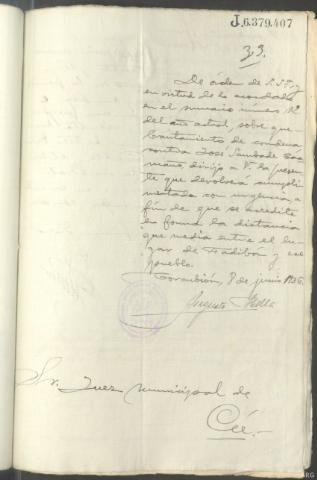 J.6.379.407
33.
De orden de S.Sª y
en virtud de lo acordado
en el sumario número 12
del año actual, sobre que-
brantamiento de condena
contra José Sambade
dirijo a V. la presen-
te que devolverá cumpli-
mentada con urgencia, a
fin de que se acredite
en forma la distancia
que media entre el lu-
gar de y ese
pueblo.
Corcubión, 8 de junio 1936.
Augusto
Sr. Juez municipal de
Cée.-